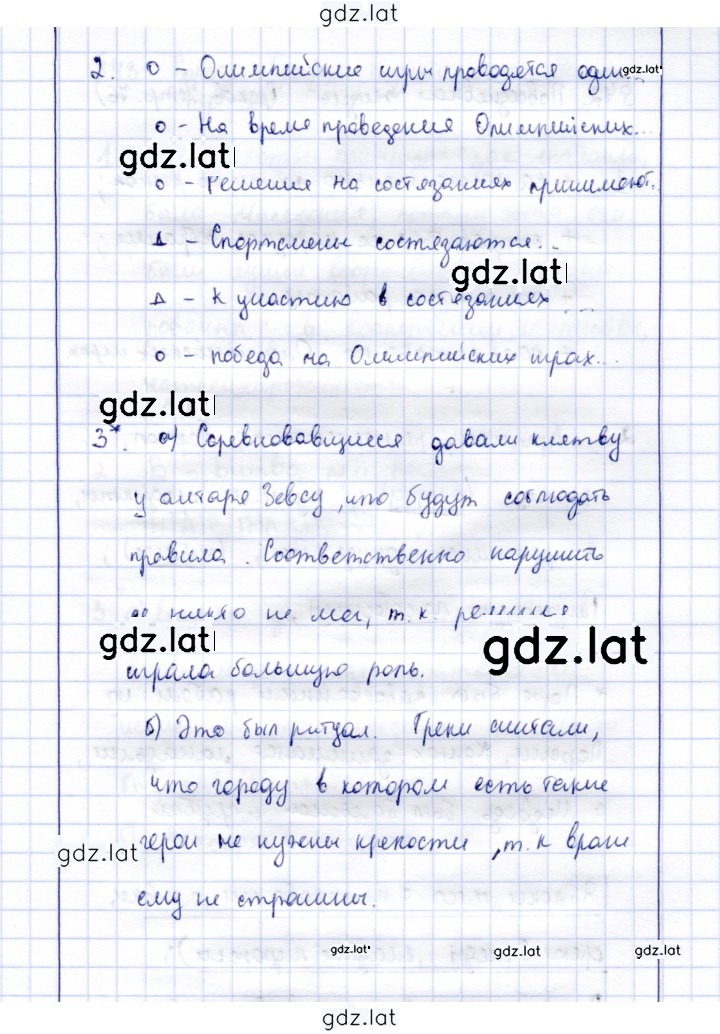 gdz.lat
2. о - Олимпийские игры проводятся один gdz.lat
о - На время проведения Олимпийских...
gdz.lat
о - Решения на состязаниях принимают.
Δ - Спортсмены состязаются...
gdz.lat
Δ - К участию в состязаниях...
о - победа на Олимпийских играх...
gdz.lat
3*. а) Соревновавшиеся давали клятву
у алтаря Зевсу, что будут соблюдать
правила. Соответственно нарушить
никто не мог, т.к.
gdz.lat gdz.lat
играла большую роль.
б) Это был ритуал. Греки считали,
что городу в котором есть такие
герои не нужны крепости, т.к враги
gdz.lat
ему не страшны.
gdz.lat gdz.lat gdz.lat
gdz.lat